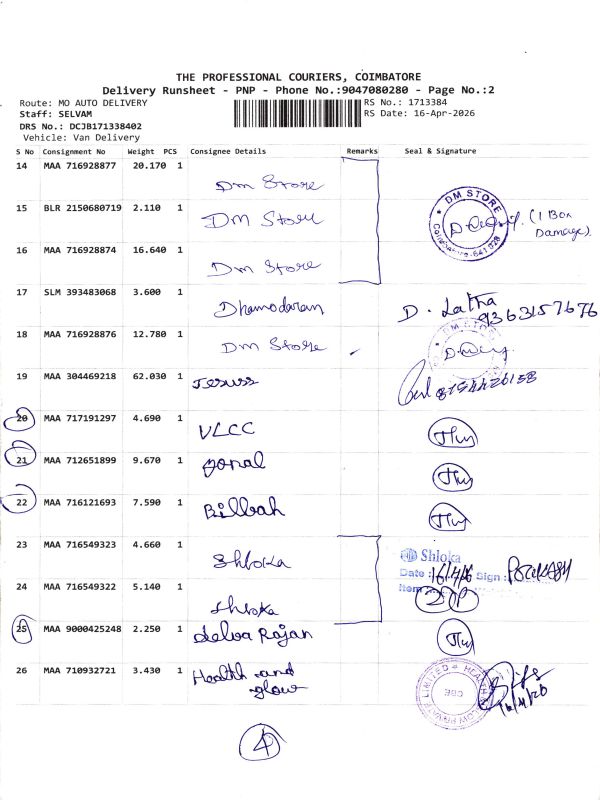 THE PROFESSIONAL COURIERS, COIMBATORE
Delivery Runsheet - PNP - Phone No.:9047080280 - Page No.:2
Route: MO AUTO DELIVERY RS No.: 1713384
Staff: SELVAM RS Date: 16-Apr-2026
DRS No.: DCJB171338402
Vehicle: Van Delivery
S No Consignment No Weight PCS Consignee Details Remarks Seal & Signature
14 MAA 716928877 20.170 1 Dm Store
15 BLR 2150680719 2.110 1 DM Store DM STORE Coimbatore-641 028 (1 Box Damage)
16 MAA 716928874 16.640 1 Dm Store
17 SLM 393483068 3.600 1 Dhamodaran D. Latha 9363157676
18 MAA 716928876 12.780 1 DM Store DM STORE
19 MAA 304469218 62.030 1 Jesuss
20 MAA 717191297 4.690 1 VLCC
21 MAA 712651899 9.670 1
22 MAA 716121693 7.590 1 Billbah
23 MAA 716549323 4.660 1 Shloka Shloka
Date : 16/4/26 Sign :
24 MAA 716549322 5.140 1 Shloka Item
25 MAA 9000425248 2.250 1 Selva Rajan
26 MAA 710932721 3.430 1 Health and glow 16/4/26
4